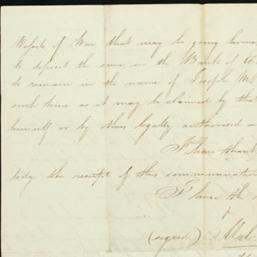 of War that may be going home
to deposit the same in the Bank of
to remain in the name of Joseph
such time as it may be claimed by
himself or by those legally authorised
I have
lody the receipt of this communication
I have the
(signed)